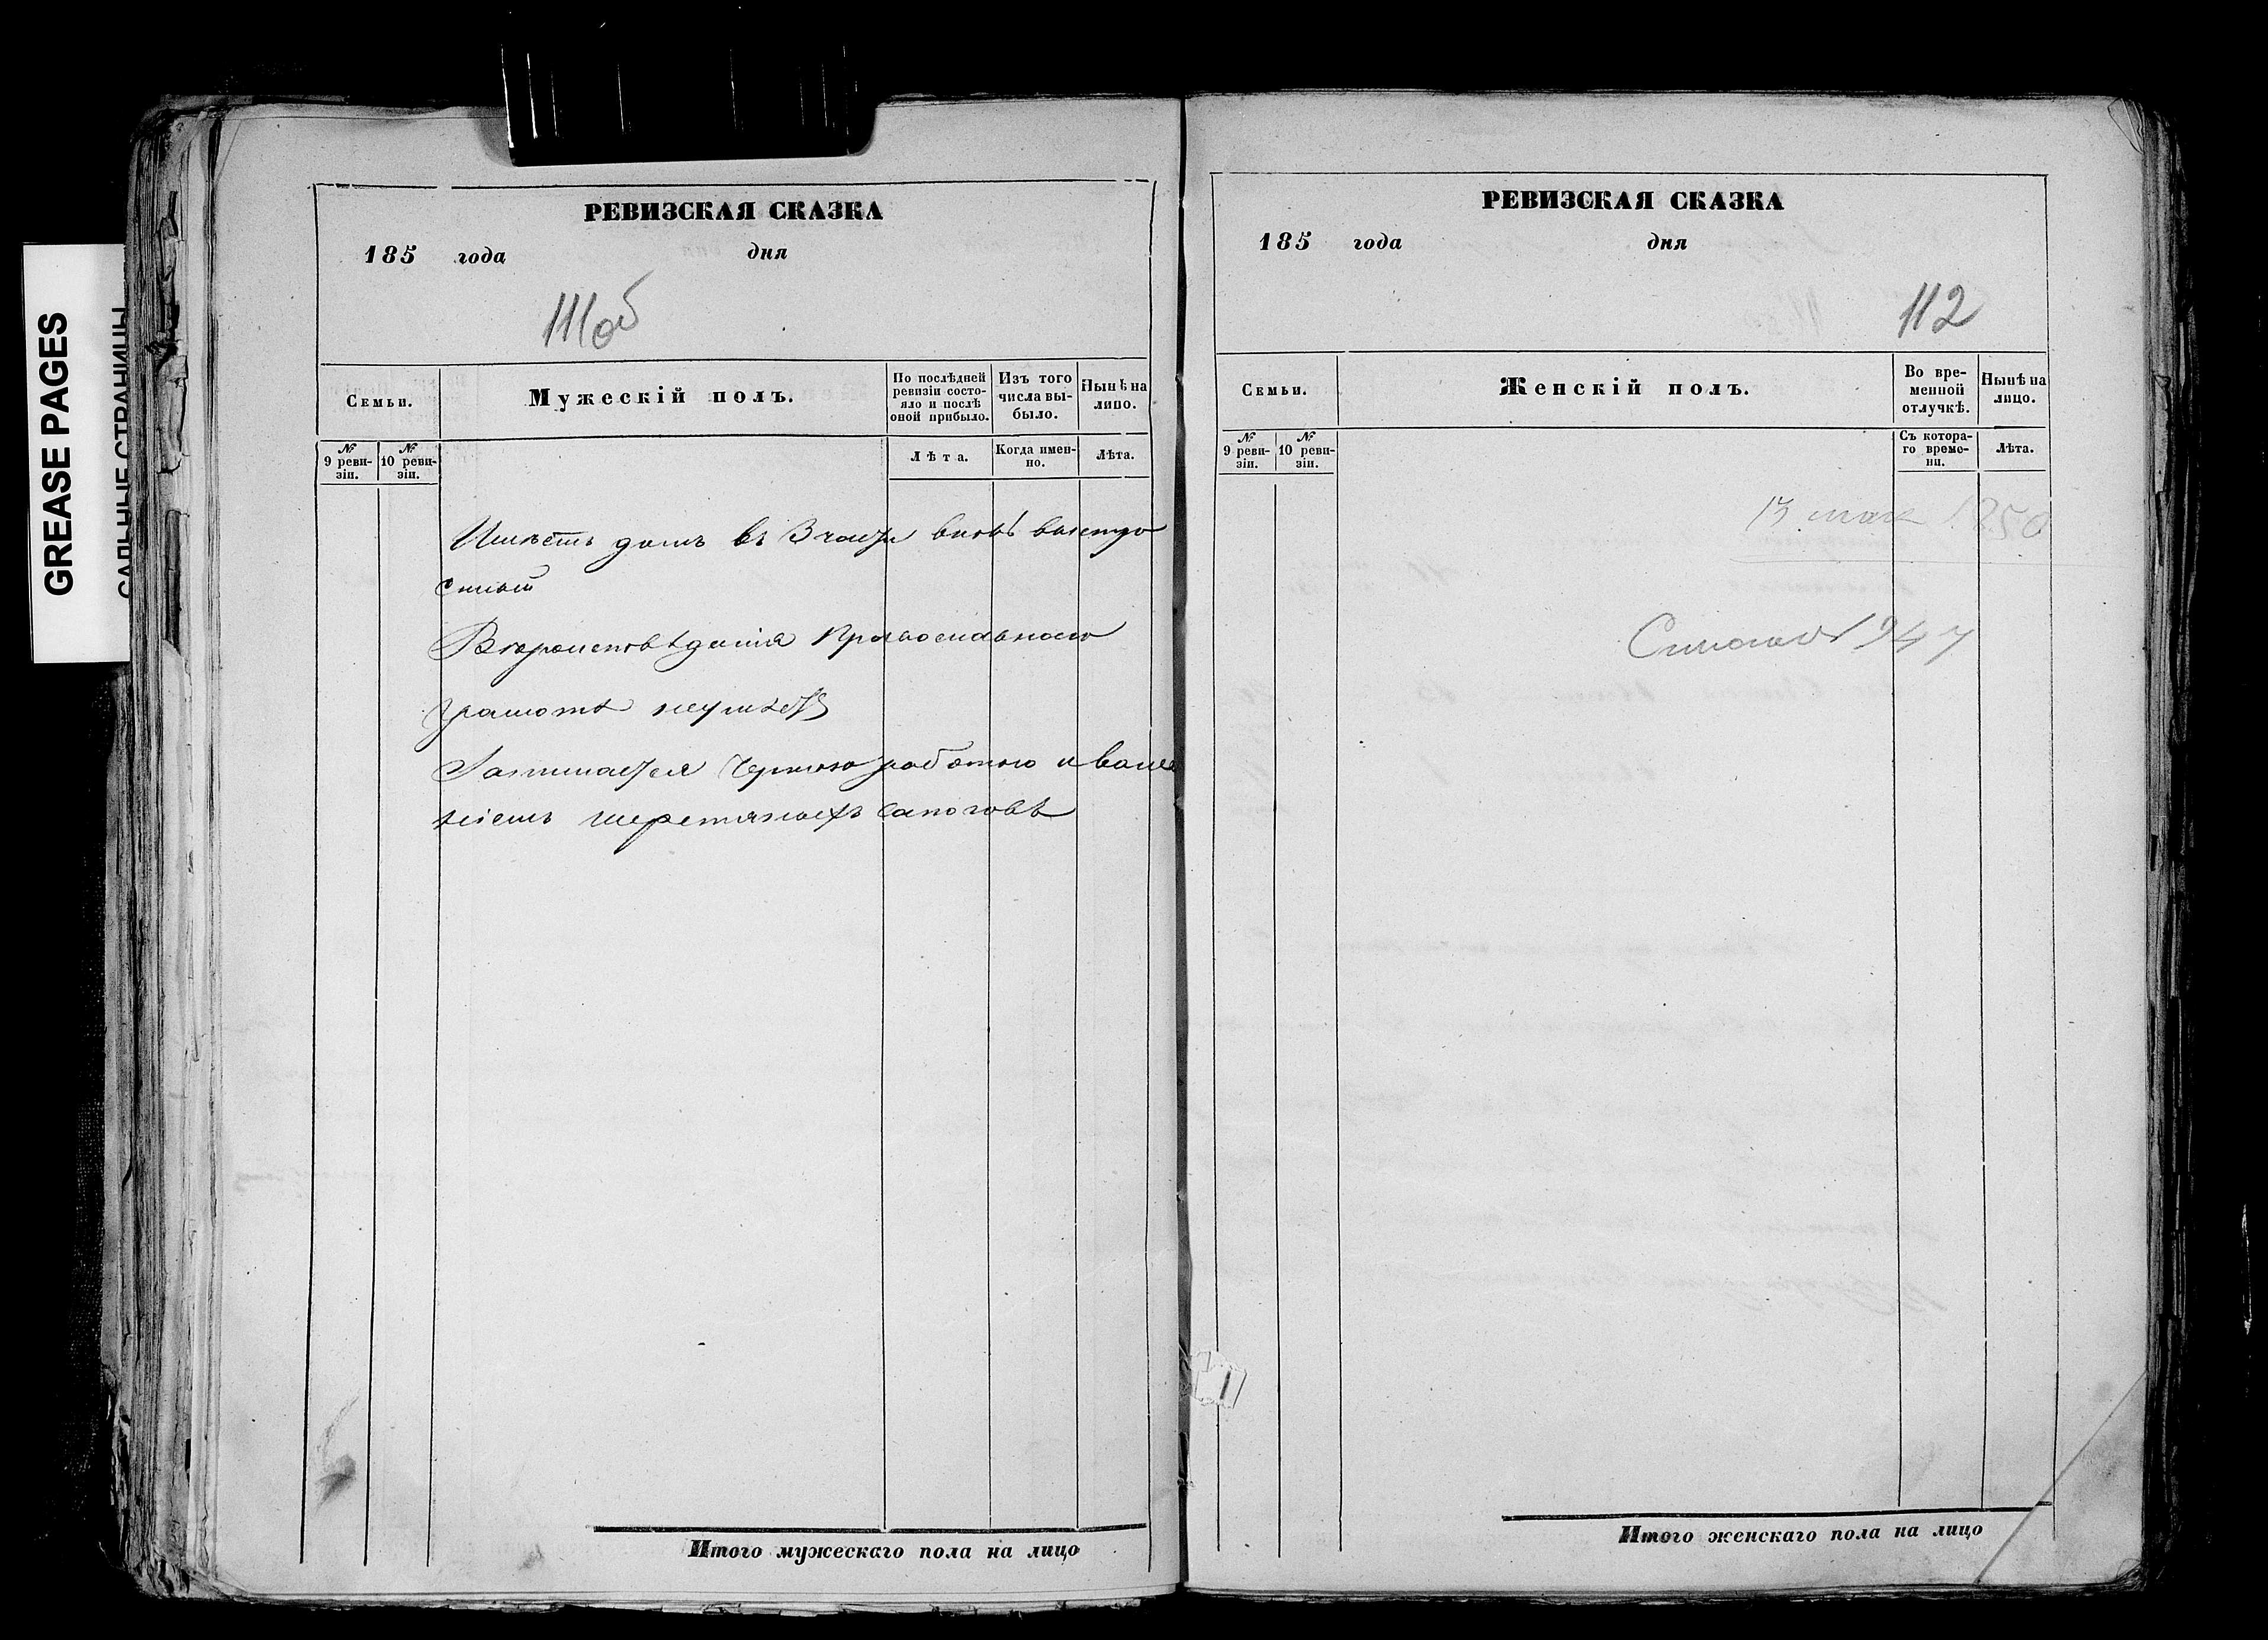 GREASE PAGES
САЛЬНЫЕ СТРАНИЦЫ
РЕВИЗСКАЯ СКАЗКА
185 года дня
111об
Семьи.
Мужескій полъ.
По послѣдней ревизіи состояло и послѣ оной прибыло.
Изъ того числа выбыло.
Нынѣ на лицо.
№ 9 ревизіи.
№ 10 ревизіи.
Лѣта.
Когда именно.
Лѣта.
Имѣетъ домъ въ 3 части
Вѣроисповѣданія Православного
грамотѣ неумѣетъ
Занимается черною работою и валя
ніемъ шерстяныхъ сапоговъ
Итого мужескаго пола на лицо
РЕВИЗСКАЯ СКАЗКА
185 года дня
112
Семьи.
Женскій полъ.
Во временной отлучкѣ.
Нынѣ на лицо.
№ 9 ревизіи.
№ 10 ревизіи.
Съ котораго времени.
Лѣта.
13 мая
947
1
Итого женскаго пола на лицо